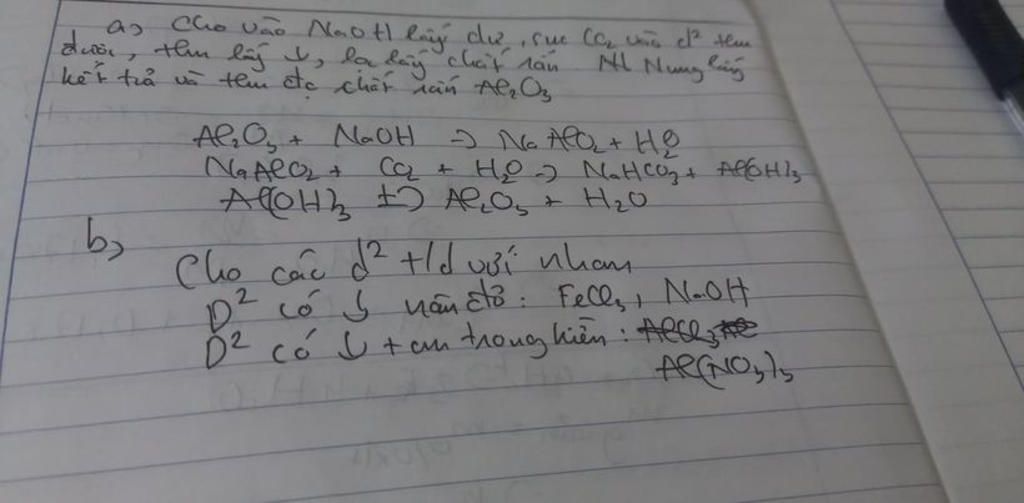 a) Cho vào NaOH lấy dư, sục CO₂ vào d² thu
được, thu lấy ↓, lọc lấy chất rắn Nung lấy
kết tủa và thu đc chất rắn Al₂O₃
Al₂O₃ + NaOH → NaAlO₂ + H₂O
NaAlO₂ + CO₂ + H₂O → NaHCO₃ + Al(OH)₃
Al(OH)₃ →
b)
Cho các d² t/d với nhau
D² có ↓ nâu đỏ: FeCl₃, NaOH
D² có ↓ + tan trong kiềm:
Al(NO₃)₃